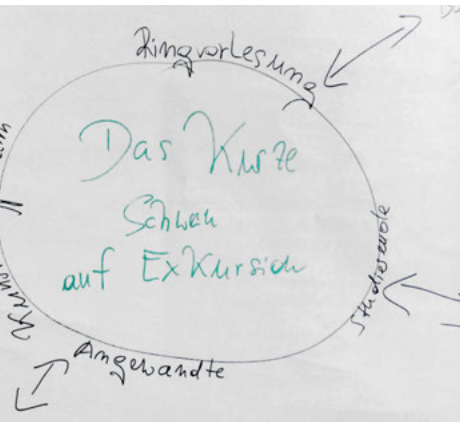 Ringvorlesung
Das Kurze
auf Exkursion
Studierende
Angewandte